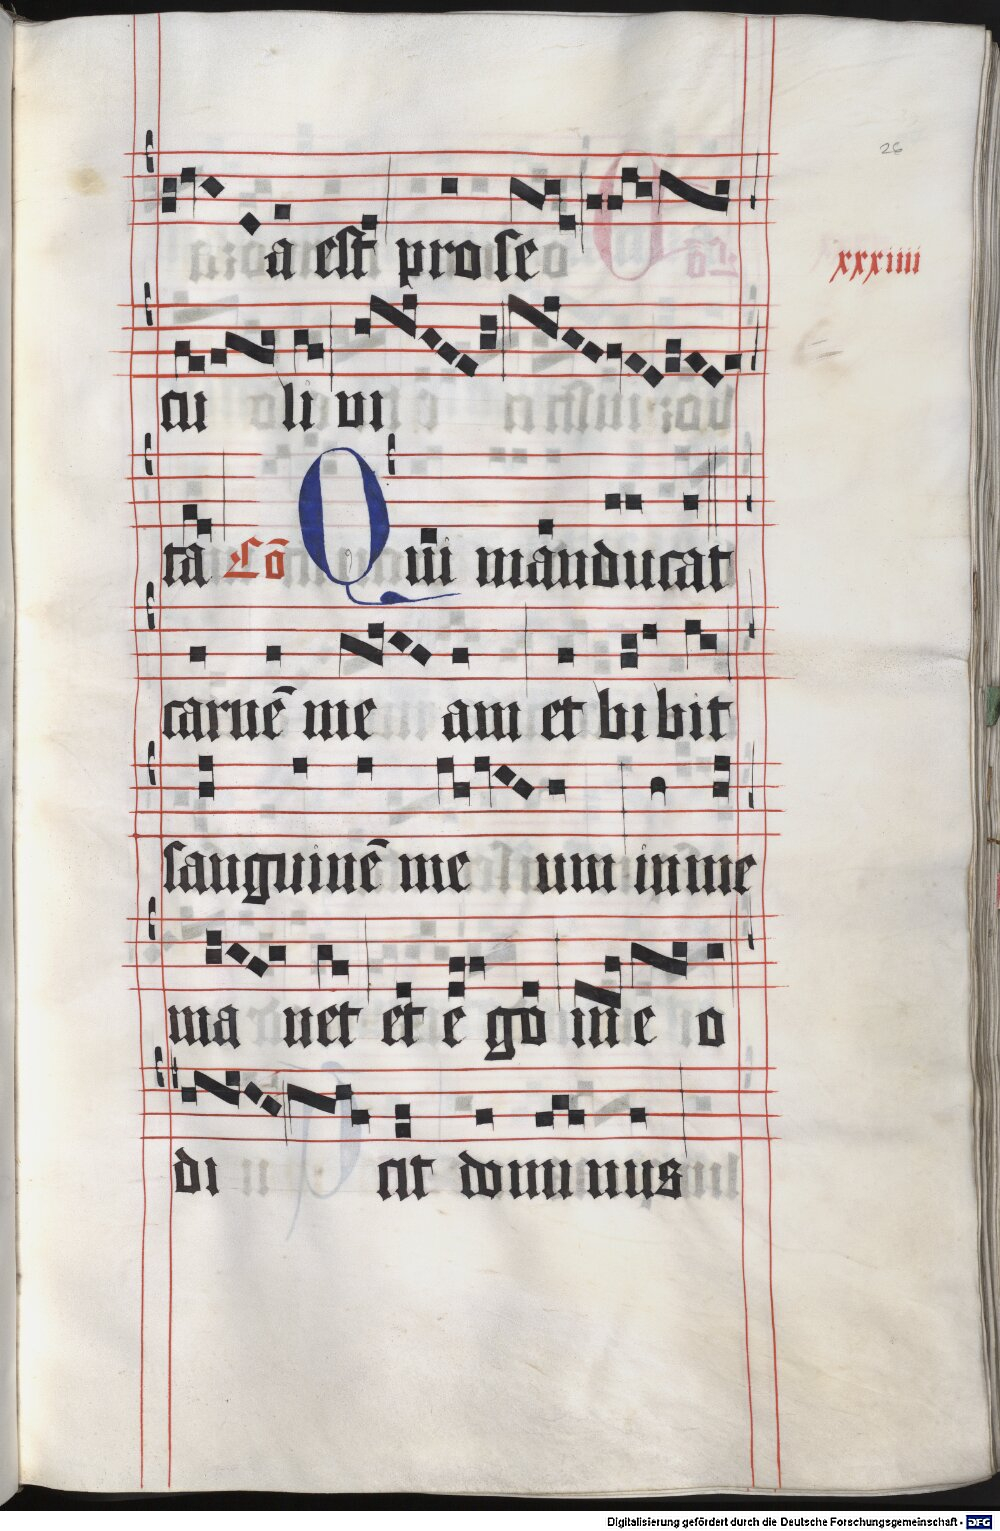 26
a est pro se
xxxiiii
cu li vi
ta Cō Qui manducat
carnē me am et bibit
sanguinē me um in me
ma net et e go in e o
di cit dominus
Digitalisierung gefördert durch die Deutsche Forschungsgemeinschaft - DFG